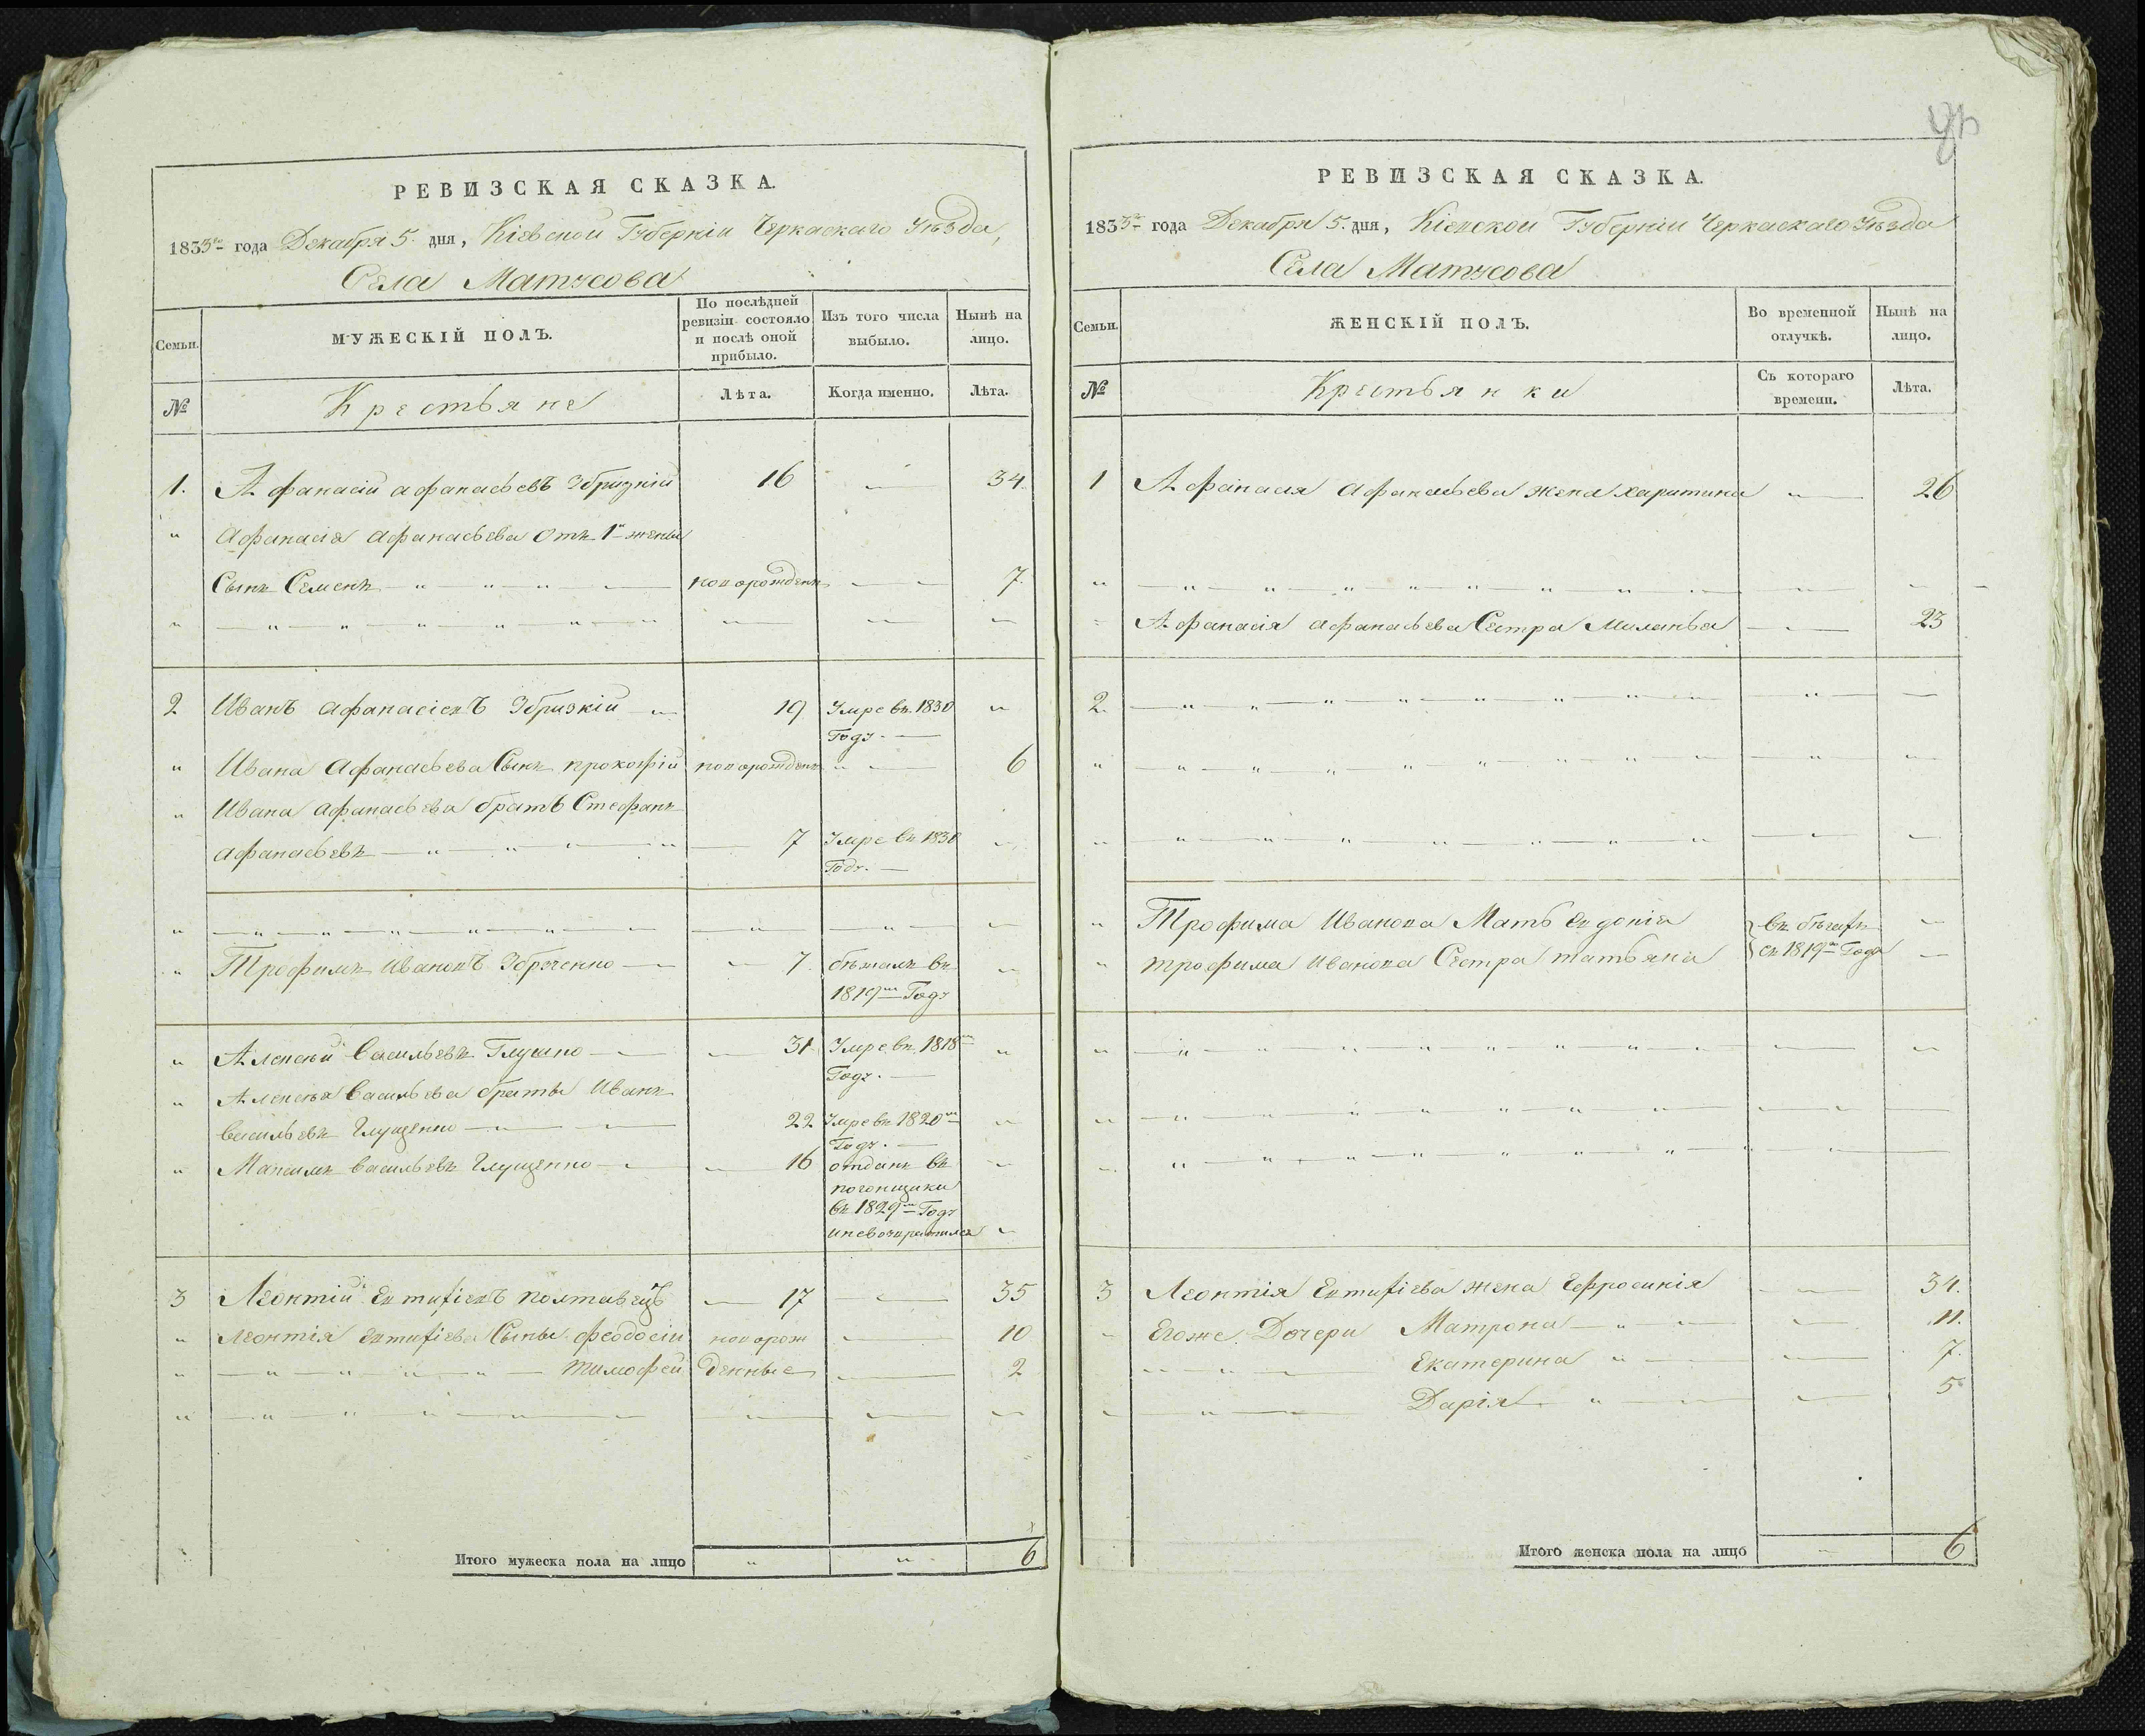 РЕВИЗСКАЯ СКАЗКА.
1833го года Декабря 5. дня, Кіевской Губерніи Черкаскаго Уѣзда,
Села Матусова
Семьи.
МУЖЕСКІЙ ПОЛЪ.
По послѣдней ревизіи состояло и послѣ оной прибыло.
Изъ того числа выбыло.
Нынѣ на лицо.
№
Крестьяне
Лѣта.
Когда именно.
Лѣта.
1. Афанасій Афанасьевъ 16 — 34
" Афанасія Афанасьева отъ 1й жены
Сынъ Семенъ новорожденъ — 7
2 Иванъ Афанасіевъ Збризкій 19 Умре въ 1830 "
Году.
" Ивана Афанасьева Сынъ прокофій новорожденъ " — 6
" Ивана Афанасьева братъ Стефанъ
Афанасьевъ 7 Умре въ 1830
Году.
" Трофимъ Ивановъ 7 бѣжалъ въ
1819м Году
" Алексѣй Васильевъ 31 Умре въ 1818м
Году.
" Алексѣя Васильева браты Иванъ
Васильевъ Глущенко 22 Умре въ 1820м
Году.
" Максимъ Васильевъ Глущенко 16 отданъ въ
погонщики
въ 1829м Году
и невозвратился
3 Леонтій Евтифіевъ полтавецъ 17 — 35
" Леонтія Евтифіева Сыны феодосій новорож 10
" тимофей денные 2
Итого мужеска пола на лицо " " 6
РЕВИЗСКАЯ СКАЗКА.
1833го года Декабря 5. дня, Кіевской Губерніи Черкаскаго Уѣзда
Села Матусова
Семьи.
ЖЕНСКІЙ ПОЛЪ.
Во временной отлучкѣ.
Нынѣ на лицо.
№
Крестьянки
Съ котораго времени.
Лѣта.
1 Афанасія Афанасьева жена харитина " — 26
Афанасія Афанасьева Сестра Миланья — 23
2
" Трофима Иванова Мать Евдокія въ бѣгахъ
" трофима Иванова Сестра татьяна съ 1819го Года
3 Леонтія Евтифіева жена Ефросинія — 34.
Егоже Дочери Матрона — 11.
Екатерина " — 7.
Дарія " — 5
Итого женска пола на лицо " 6